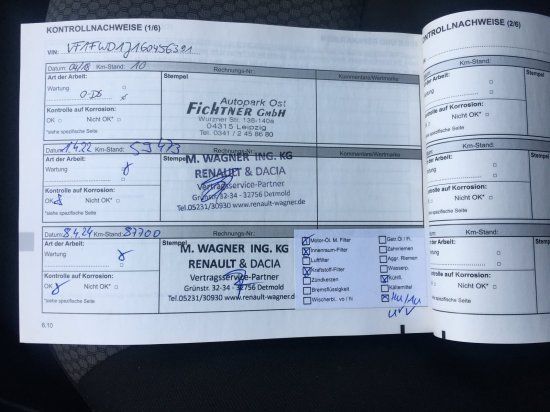 KONTROLLNACHWEISE (1/6)
VIN: VF1FWD1J160456391
Datum: 04/18 Km-Stand: 10 Rechnungs-Nr.:
Art der Arbeit: Stempel Kommentare/Wertmarke
Wartung
0-DS
Kontrolle auf Korrosion:
OK Nicht OK*
*siehe spezifische Seite
Autopark Ost
FICHTNER GmbH
Wurzner Str. 138-140a
04315 Leipzig
Tel. 0341 / 2 45 86 80
Datum: 14.22 Km-Stand: 59473 Rechnungs-Nr.:
Art der Arbeit: Stempel Kommentare/Wertmarke
Wartung
Kontrolle auf Korrosion:
OK Nicht OK*
*siehe spezifische Seite
M. WAGNER ING. KG
RENAULT & DACIA
Vertragsservice-Partner
Grünstr. 32-34 - 32756 Detmold
Tel. 05231/30930 www.renault-wagner.de
Datum: 8.4.24 Km-Stand: 83700
Art der Arbeit:
Wartung
Kontrolle auf Korrosion:
OK Nicht OK*
*siehe spezifische Seite
M. WAGNER ING. KG
RENAULT & DACIA
Vertragsservice-Partner
Grünstr. 32-34 - 32756 Detmold
Tel. 05231/30930 www.renault-wagner.de
Motor-Öl. M. Filter
Innenraum-Filter
Luftfilter
Kraftstoff-Filter
Zündkerzen
Bremsflüssigkeit
Wischerbl. vo / hi
Getr.Öl / Fl.
Zahnriemen
Aggr. Riemen
Wasserp.
Kühlfl.
Kältemittel
HU/AU
6.10
KONTROLLNACHWEISE (2/6)
Datum: Km-Stand:
Art der Arbeit:
Wartung
Kontrolle auf Korrosion:
OK Nicht OK*
*siehe spezifische Seite
Datum: Km-Stand:
Art der Arbeit:
Wartung
Kontrolle auf Korrosion:
OK Nicht OK*
*siehe spezifische Seite
Datum: Km-Stand:
Art der Arbeit:
Wartung
Kontrolle auf Korrosion:
OK Nicht OK*
*siehe spezifische Seite